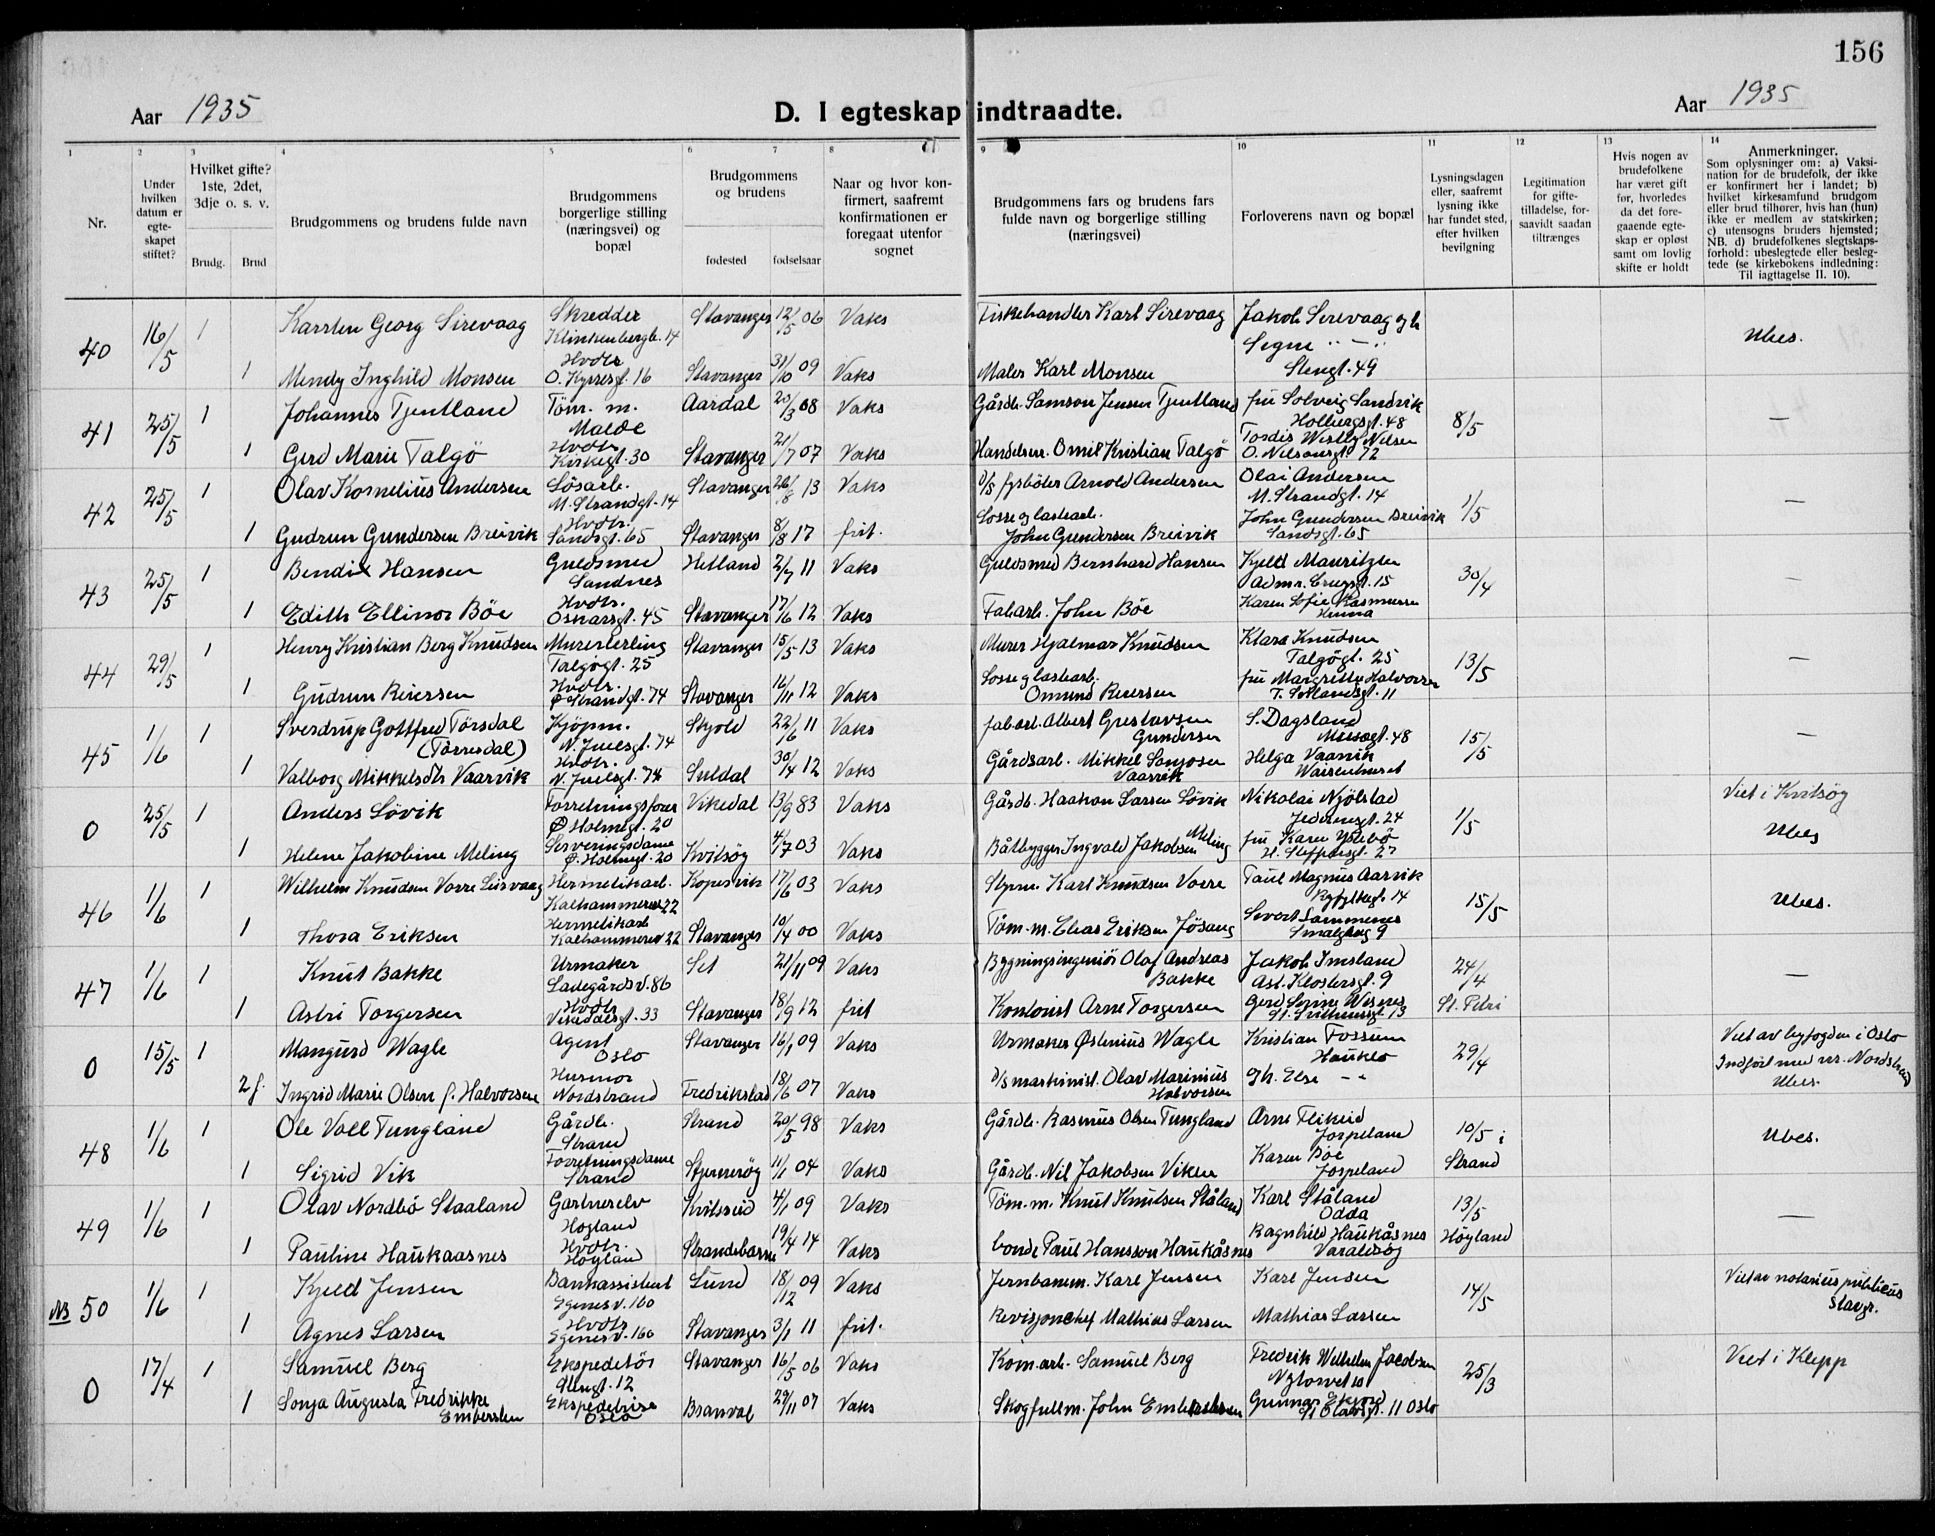 156
Aar 1935
D. I egteskap indtraadte.
Aar 1935
1 2 3 4 5 6 7 8 9 10 11 12 13 14
Nr.
Under hvilken datum er egte-skapet stiftet?
Hvilket gifte? 1ste, 2det, 3dje o. s. v.
Brudg. Brud
Brudgommens og brudens fulde navn
Brudgommens borgerlige stilling (næringsvei) og bopæl
Brudgommens og brudens
fødested fødselsaar
Naar og hvor kon-firmert, saafremt konfirmationen er foregaat utenfor sognet
Brudgommens fars og brudens fars fulde navn og borgerlige stilling (næringsvei)
Forloverens navn og bopæl
Lysningsdagen eller, saafremt lysning ikke har fundet sted, efter hvilken bevilgning
Legitimation for gifte-tilladelse, for-saavidt saadan tiltrænges
Hvis nogen av brudefolkene har været gift før, hvorledes da det fore-gaaende egte-skap er opløst samt om lovlig skifte er holdt
Anmerkninger.
Som oplysninger om: a) Vaksi-nation for de brudefolk, der ikke er konfirmert her i landet; b) hvilket kirkesamfund brudgom eller brud tilhører, hvis han (hun) ikke er medlem av statskirken; c) utensogns bruders hjemsted; NB. d) brudefolkenes slegtskaps-forhold: ubeslegtede eller besleg-tede (se kirkebokens indledning: Til iagttagelse II. 10).
40 16/5 1 Karsten Georg Sirevaag Skredder Klinkenbergb. 14 Stavanger 12/5 06 Vaks Fiskehandler Karl Sirevaag Jakob Sirevaag og h Signe " — " Ubes.
1 Mendy Inghild Monsen Hvdtr O. Kyrresgt. 16 Stavanger 31/10 09 Vaks Maler Karl Monsen Stengt. 49
41 25/5 1 Johannes Tjentland Töm. m. Malde Aardal 20/3 08 Vaks Gårdb. Samson Jensen Tjentland fru Solveig Sandvik Holbergsgt. 48 8/5 —
1 Gerd Marie Talgö Hvdtr Kirkegt. 30 Stavanger 21/7 07 Vaks Handelsm. Omil Kristian Talgö Tordis Westby Nilsen O. Nilsensgt 72
42 25/5 1 Olav Kornelius Andersen Lösarb. M. Strandgt. 14 Stavanger 26/8 13 Vaks D/S fyrböter Arnold Andersen Olai Andersen M. Strandgt. 14 1/5 —
1 Gudrun Gundersen Breivik Hvdtr. Sandsgt. 65 Stavanger 8/8 17 frit. Losse og lastearb. John Gundersen Breivik John Gundersen Breivik Sandsgt. 65
43 25/5 1 Bendix Hansen Guldsmed Sandnes Hetland 2/7 11 Vaks Guldsmed Bernhard Hansen Kjeld Mauritzen Admr. Cruysgt. 15 30/4 —
1 Edith Ellinor Böe Hvdtr. Oskarsgt. 45 Stavanger 17/6 12 Vaks Fabarb. John Böe Karen Sofie Rasmussen Hinna
44 29/5 1 Henry Kristian Berg Knudsen Murerlerling Talgögt. 25 Stavanger 15/5 13 Vaks Murer Hjalmar Knudsen Klara Knudsen Talgögt. 25 13/5 —
1 Gudrun Reiersen Hvdtr. Ø Strandgt. 74 Stavanger 16/11 12 Vaks Losse og lastearb. Omund Reiersen fru Margrethe Halvorsen
45 1/6 1 Sverdrup Gottfred Törsdal (Törresdal) Kjöpm. N. Juelsgt. 74 Skjold 22/6 11 Vaks fabarb. Albert Gustavsen Gundersen S. Dagsland Mussegt. 48 15/5 —
1 Valborg Mikkelsdtr Vaarvik Hvdtr. N. Juelsgt. 74 Suldal 30/4 12 Vaks Gårdsarb. Mikkel Vaarvik Helga Vaarvik Waisenhuset
0 25/5 1 Anders Lövik Forretningsförer Ø Holmegt. 20 Vikedal 13/9 83 Vaks Gårdb. Haakon Larsen Lövik Nikolai Njölstad Jederensgt. 24 1/5 Viet i Kvitsöy Ubes
1 Helene Jakobine Meling Serveringsdame Ø. Holmegt. 20 Kvitsöy 4/7 03 Vaks Båtbygger Ingvald Jakobsen Meling fru Karen Ydebö H. Steffensgt. 27
46 1/6 1 Wilhelm Knudsen Vorre Leirvaag Hermetikarb. Kalhammeren 22 Kopervik 17/6 03 Vaks Styrm. Karl Knudsen Vorre Paul Magnus Aarvik Ryfylkegt. 14 15/5 Ubes.
1 Thora Eriksen Hermetikarb Kalhammeren 22 Stavanger 10/14 00 Vaks Töm. m. Elias Eriksen Jösang Sevart Lammenes Smalgang 9
47 1/6 1 Knut Bakke Urmaker Ladegårdsv. 86 Sel 21/11 09 Vaks Bygningsingeniör Olaf Andreas Bakke Jakob Imsland Ast. Klostersgt. 9 24/4 —
1 Astri Torgersen Hvdtr Vikedalsgt. 33 Stavanger 18/9 12 frit Kontorist Arne Torgersen Gerd Serine Wisnes St. Petri
0 15/5 1 Mangurd Wagle Agent Oslo Stavanger 16/1 09 Vaks Urmaker Østenius Wagle Kristian Fossum Hauketo 29/4 Viet av byfogden i Oslo Indfört med nr. Nordstrand Ubes.
2 f. Ingrid Marie Olsen f. Halvorsen Husmor Nordstrand Fredrikstad 18/6 07 Vaks D/S maskinist Olav Marinius Halvorsen og h. Else — "
48 1/6 1 Ole Voll Tungland Gårdb. Strand Strand 20/5 98 Vaks Gårdb. Rasmus Olsen Tungland Arne Fliksid Jørpeland 10/5 i Strand Ubes.
1 Sigrid Vik Forretningsdame Strand Stjernerøy 11/1 04 Vaks Gårdb. Nil Jakobsen Viken Karen Böe Jørpeland
49 1/6 1 Olav Nordbö Staaland Gartnerelev Hogland Kvitseid 4/1 09 Vaks Töm. m. Knut Knutsen Ståland Karl Ståland Odda 13/5 Høyland —
1 Pauline Haukaasnes Hvdtr. Høyland Strandebarm 19/4 14 Vaks bonde Paul Hansson Haukåsnes Ragnhild Haukåsnes Varaldsøy
NB 50 1/6 1 Kjeld Jensen Bankassistent Egenesv. 160 Lund 18/12 09 Vaks Jernbanem. Karl Jensen Karl Jensen 14/5 Viet av notarius publicus Stavgr.
1 Agnes Larsen Hvdtr Egenesv. 160 Stavanger 3/1 11 frit. Revisjonchef Mathias Larsen Mathias Larsen
0 17/4 1 Samuel Berg Ekspeditör 12 Stavanger 16/5 06 Vaks Kom. arb. Samuel Berg Fredrik Wilhelm Jacobsen Nytorvet 10 25/3 Viet i Klepp
1 Sonja Augusta Fredrikke Embertsen Ekspeditrise Oslo Branval 29/11 07 Vaks Skogfullm. John Embertsen Gunnar Ekjord St Olavsgt. 11 Oslo